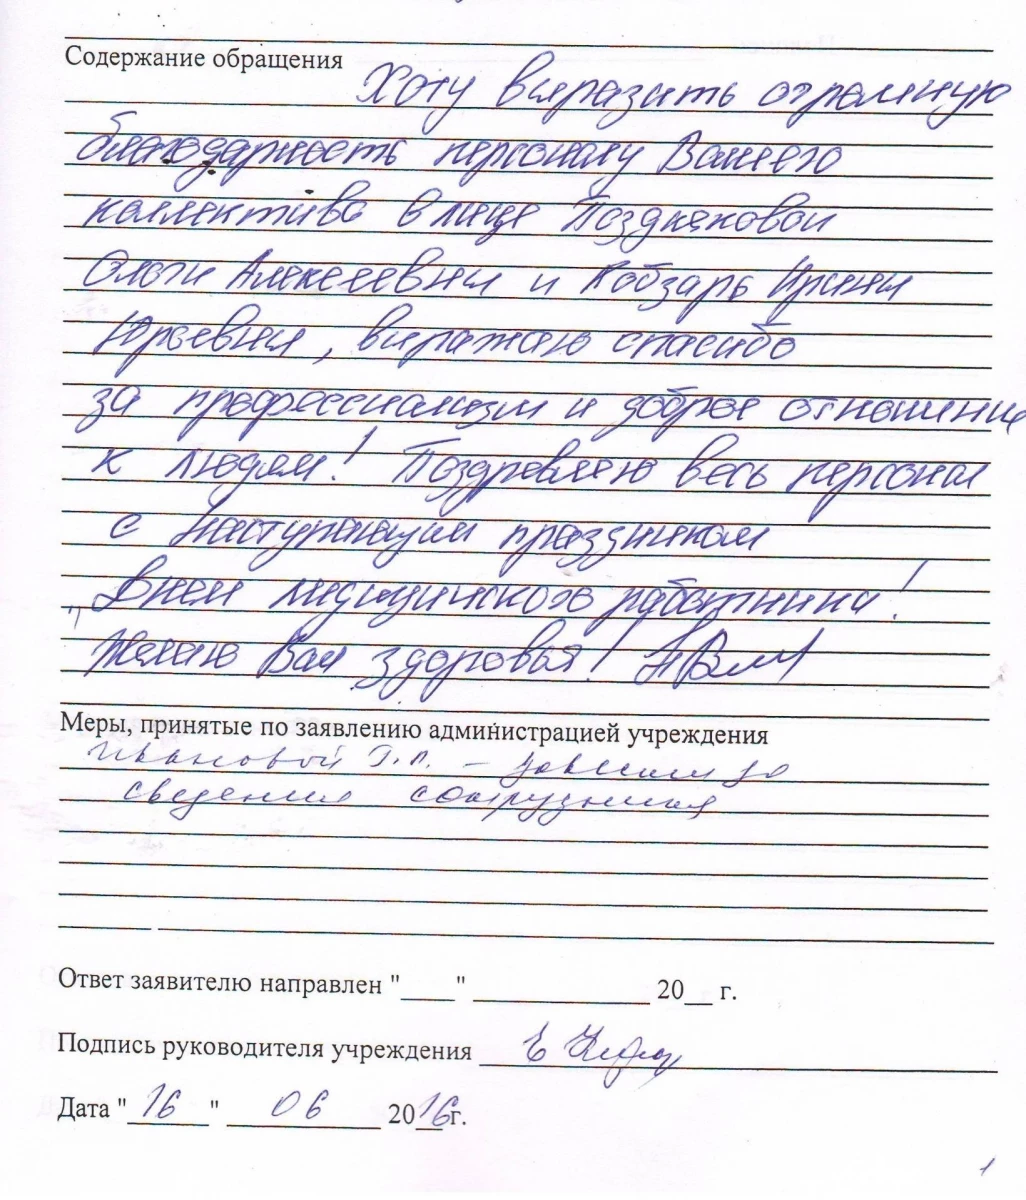 Содержание обращения
Хочу выразить огромную
благодарность персоналу Вашего
коллектива в лице Поздняковой
Ольги Алексеевны и Кобзарь Ирины
Юрьевны, выражаю спасибо
за профессионализм и доброе отношение
к людям! Поздравляю весь персонал
с наступающим праздником
"Днем медицинского работника!
Желаю Вам здоровья!
Меры, принятые по заявлению администрацией учреждения
Ивановой Г.П. – довести до
сведения сотрудников
Ответ заявителю направлен "____" _____________ 20__ г.
Подпись руководителя учреждения
Дата "16" 06 2016г.
1